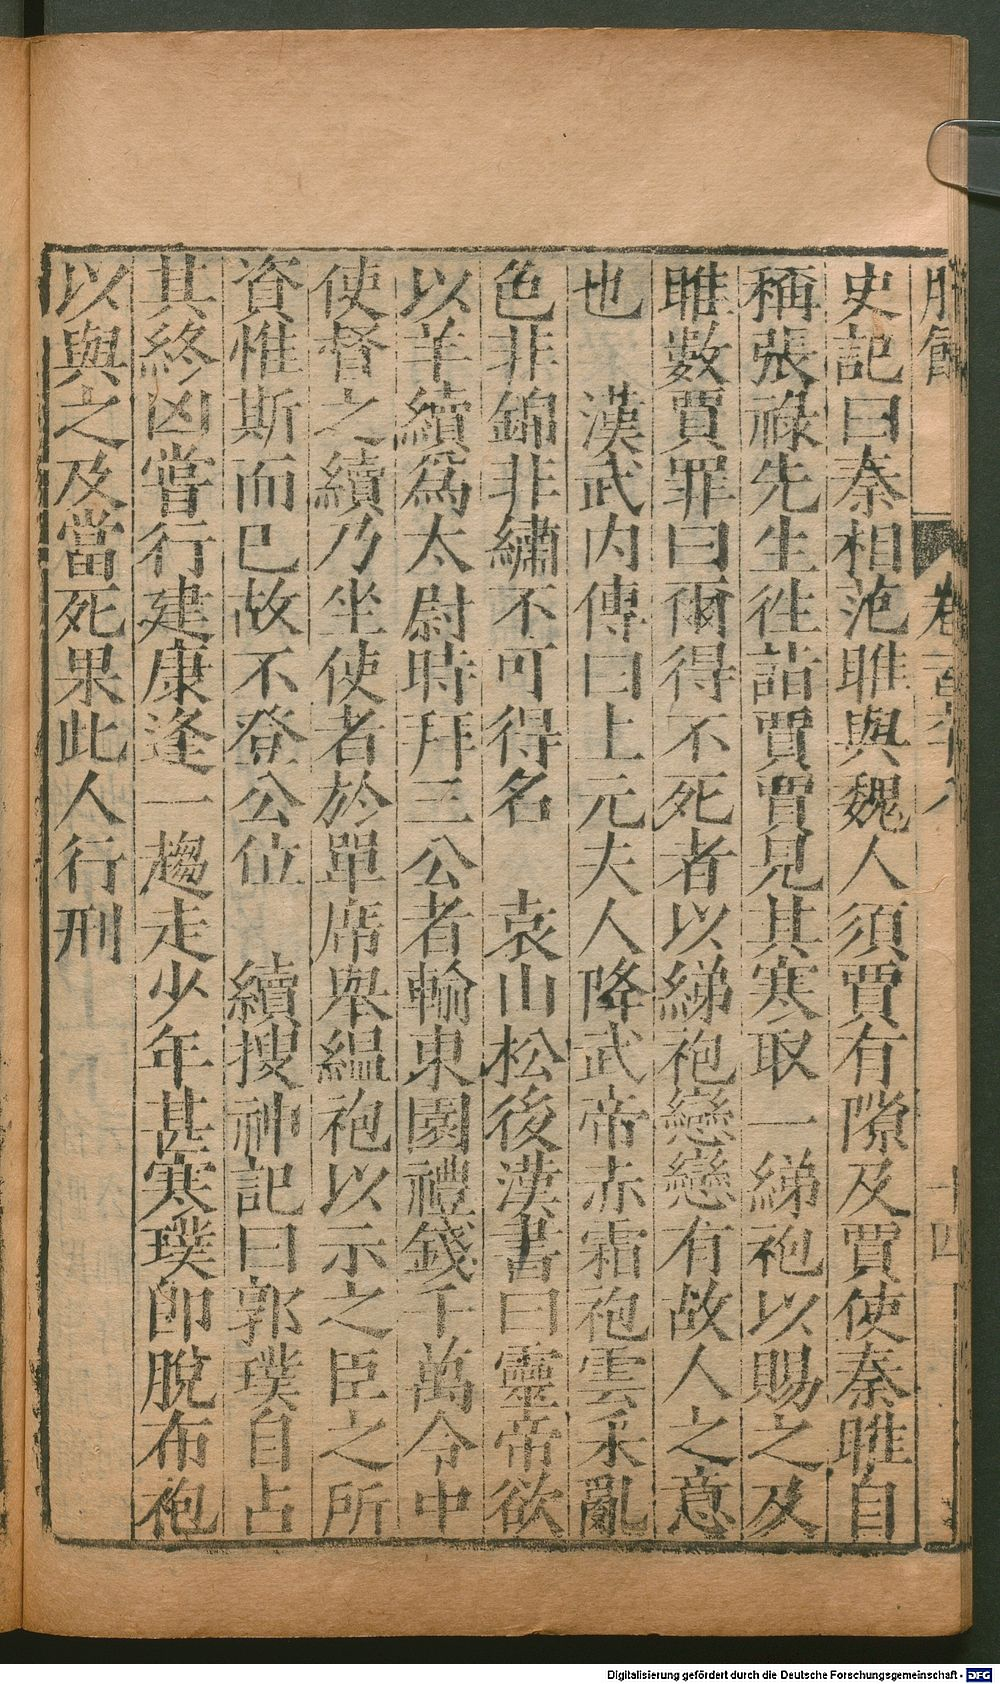 史記曰秦相范睢與魏人須賈有隙及賈使秦睢自
稱張祿先生往詣賈賈見其寒取一綈袍以賜之及
睢數賈罪曰爾得不死者以綈袍戀戀有故人之意
也　漢武內傳曰上元夫人降武帝赤霜袍雲采亂
色非錦非繡不可得名　袁山松後漢書曰靈帝欲
以羊續爲太尉時拜三公者輸東園禮錢千萬令中
使督之續乃坐使者於單席舉縕袍以示之臣之所
資惟斯而已故不登公位　續搜神記曰郭璞自占
其終凶嘗行建康逢一趨走少年甚寒璞卽脫布袍
以與之及當死果此人行刑
Digitalisierung gefördert durch die Deutsche Forschungsgemeinschaft - DFG